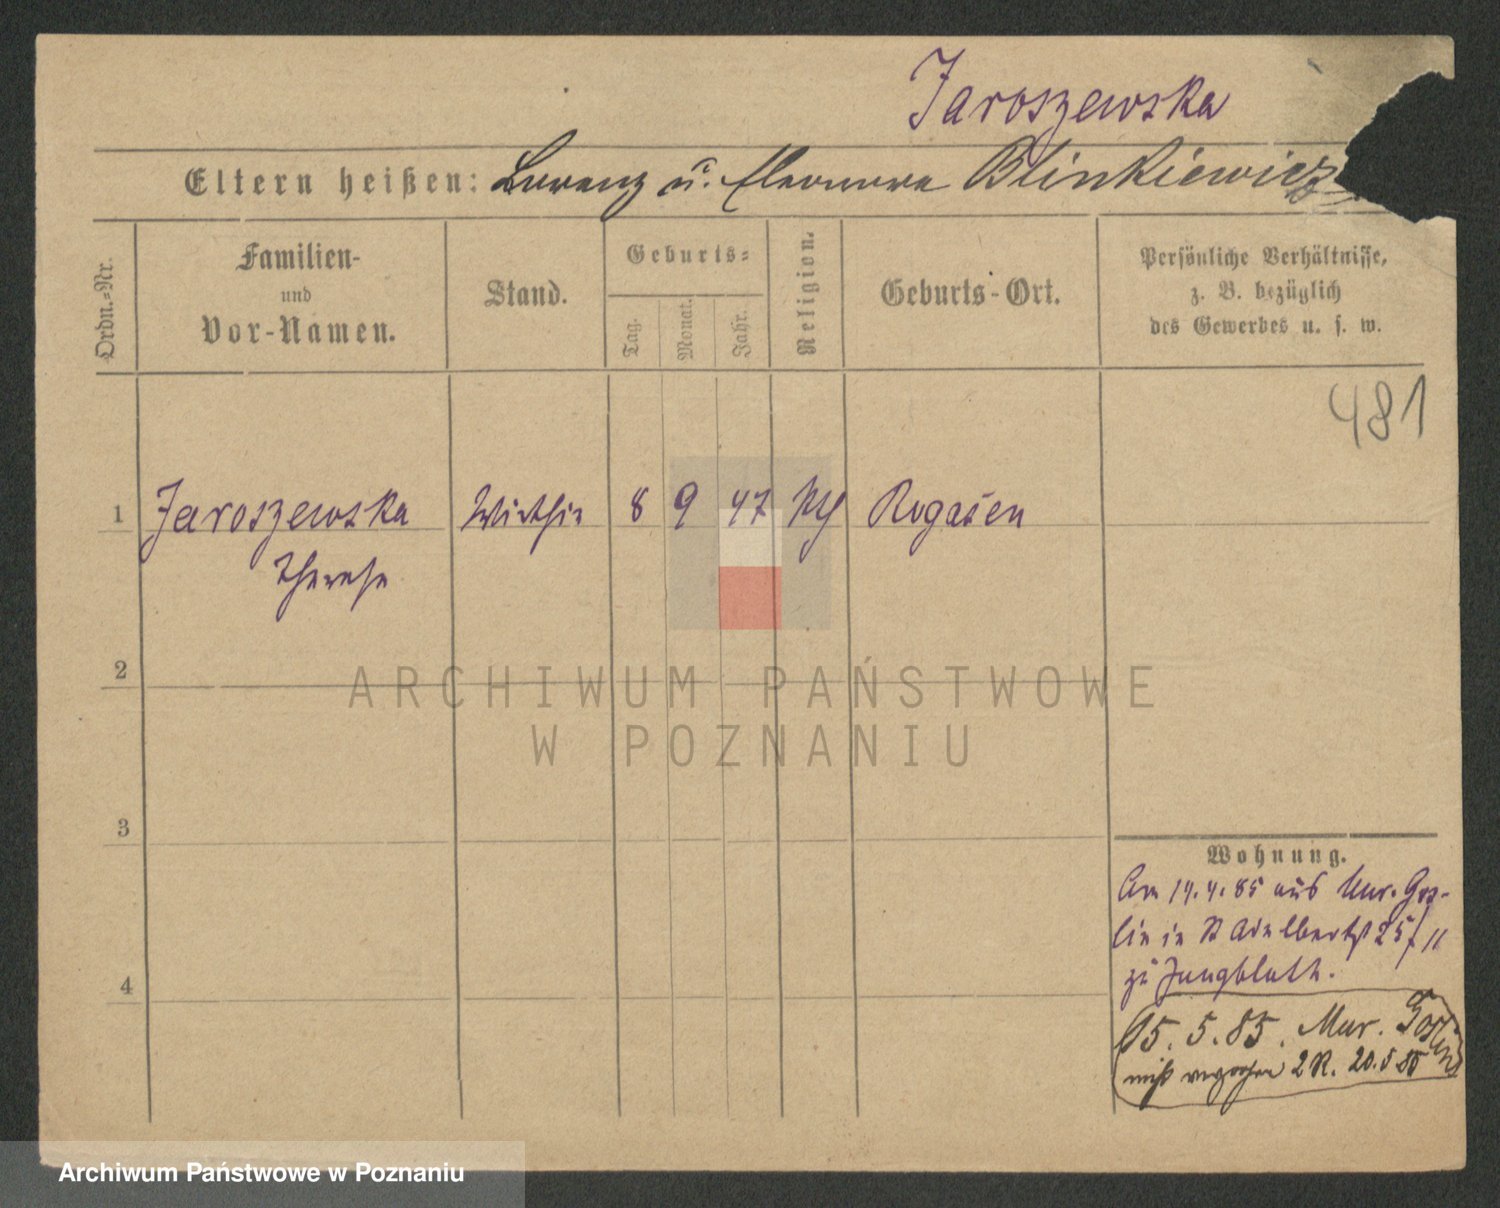 Jaroszewska
Eltern heißen: Lorenz u. Eleonore Blinkiewicz
Ordn.-Nr.
Familien-
und
Vor-Namen.
Stand.
Geburts-
Tag.
Monat.
Jahr.
Religion.
Geburts-Ort.
Persönliche Verhältnisse,
z. B. bezüglich
des Gewerbes u. s. w.
481
1 Jaroszewska Wirthin 8 9 47 kth Rogasen
Therese
2
ARCHIWUM PAŃSTWOWE
W POZNANIU
3
Wohnung.
Am 14.4.85 aus Mur. Gos-
lin in St Adalbertst 25/II
4
zu Jungbluth.
15.5.85. Mur. Goslin
nicht verzogen 2 R. 20.5 85
Archiwum Państwowe w Poznaniu